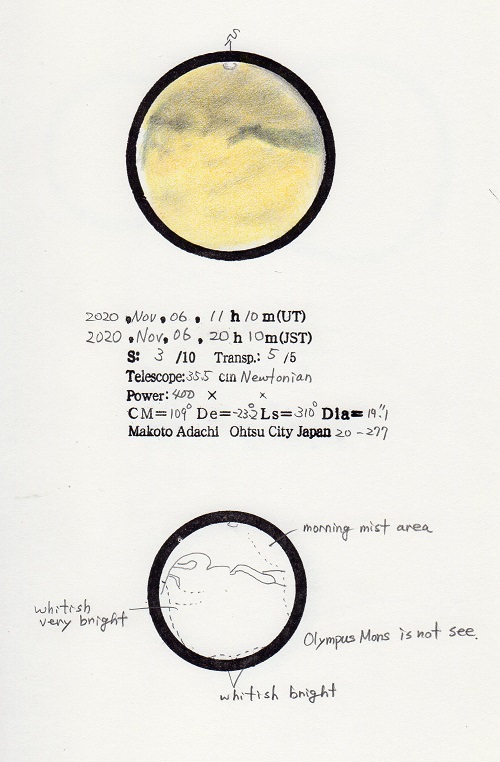 S
2020 , Nov, 06 , 11 h 10 m(UT)
2020 , Nov, 06 , 20 h 10 m(JST)
S: 3 /10 Transp.: 5 /5
Telescope: 355 cm Newtonian
Power: 400 × ×
CM=109° De=-23.2° Ls=310° Dia=19.″1
Makoto Adachi Ohtsu City Japan 20-277
morning mist area
whitish
very bright
Olympus Mons is not see.
whitish bright